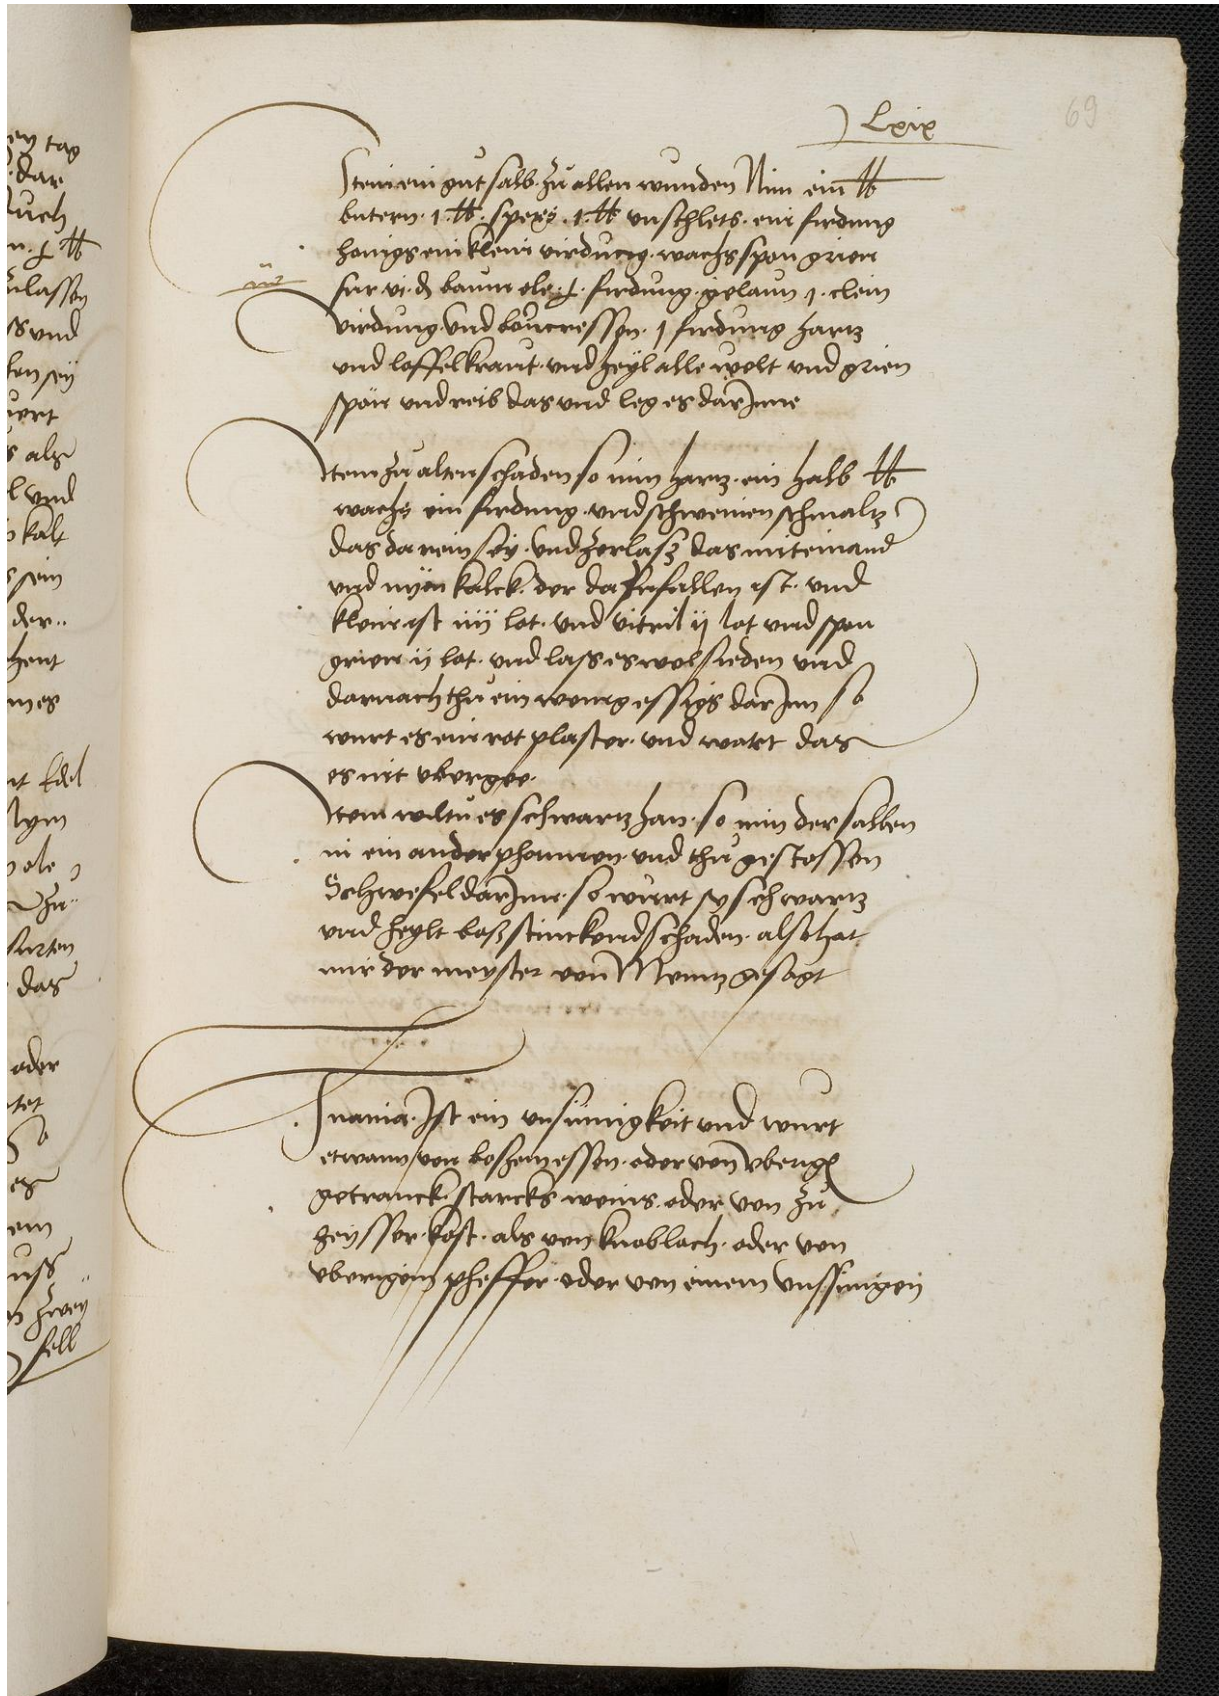 Lxix
69
Item ein gut salb zu allen wunden Nim ein lb
butern · 1 · lb · specks · 1 · lb unschlets · ein firdung
honigs ein klein virdung · wachs spon grien
fur vi ₰ baum ole · firdung · gelaun 1 · clein
virdung und boucressen · 1 firdung hartz
und loffelkraut · und heyl alle welt und grien
spon und reib das und leg es darInne
Item zu alten schaden so nim hartz · ein halb lb
wachs ein firdung · und schweinen schmaltz
das da rein sey · und zerlasz das miteinand
und nym kalck · der da zufallen ist · und
klein ist iiij lot · und vitril ij lot und spon
grien ij lot · und lass es wol sieden und
darnach thu ein wenig essigs darInn so
wurt es ein rot plaster · und wart das
es nit ubergee ·
Item wiltu es schwartz han · so nim der salben
in ein ander phannen · und thu gestossen
Schwefel darInne · so wurt sy schwartz
und heylt bosz stinckend schaden · also hat
mir der meyster von Mentz gesagt
Inania · Ist ein unsinnigkeit und wurt
etwann von boszem essen · oder von uberig
getranck · starcks weins · oder von zu
heysser · kost · als von knoblach · oder von
uberigem pheffer · oder von einem unssinigen